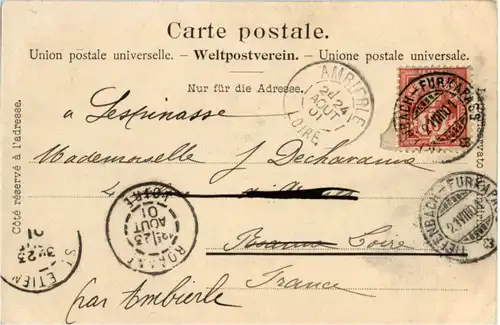 Carte postale.
Union postale universelle. – Weltpostverein. – Unione postale universale.
Nur für die Adresse.
Côté réservé à l'adresse.
AMBIERLE
24
AOUT
01
LOIRE
TIEFENBACH-FURKAPASS
à Lespinasse
Mademoiselle J Dechavanne
ROANNE
23
AOUT
01
LOIRE
TIEFENBACH-FURKAPASS
Roanne Loire
23
01
ST ETIEN
France
par Ambierle